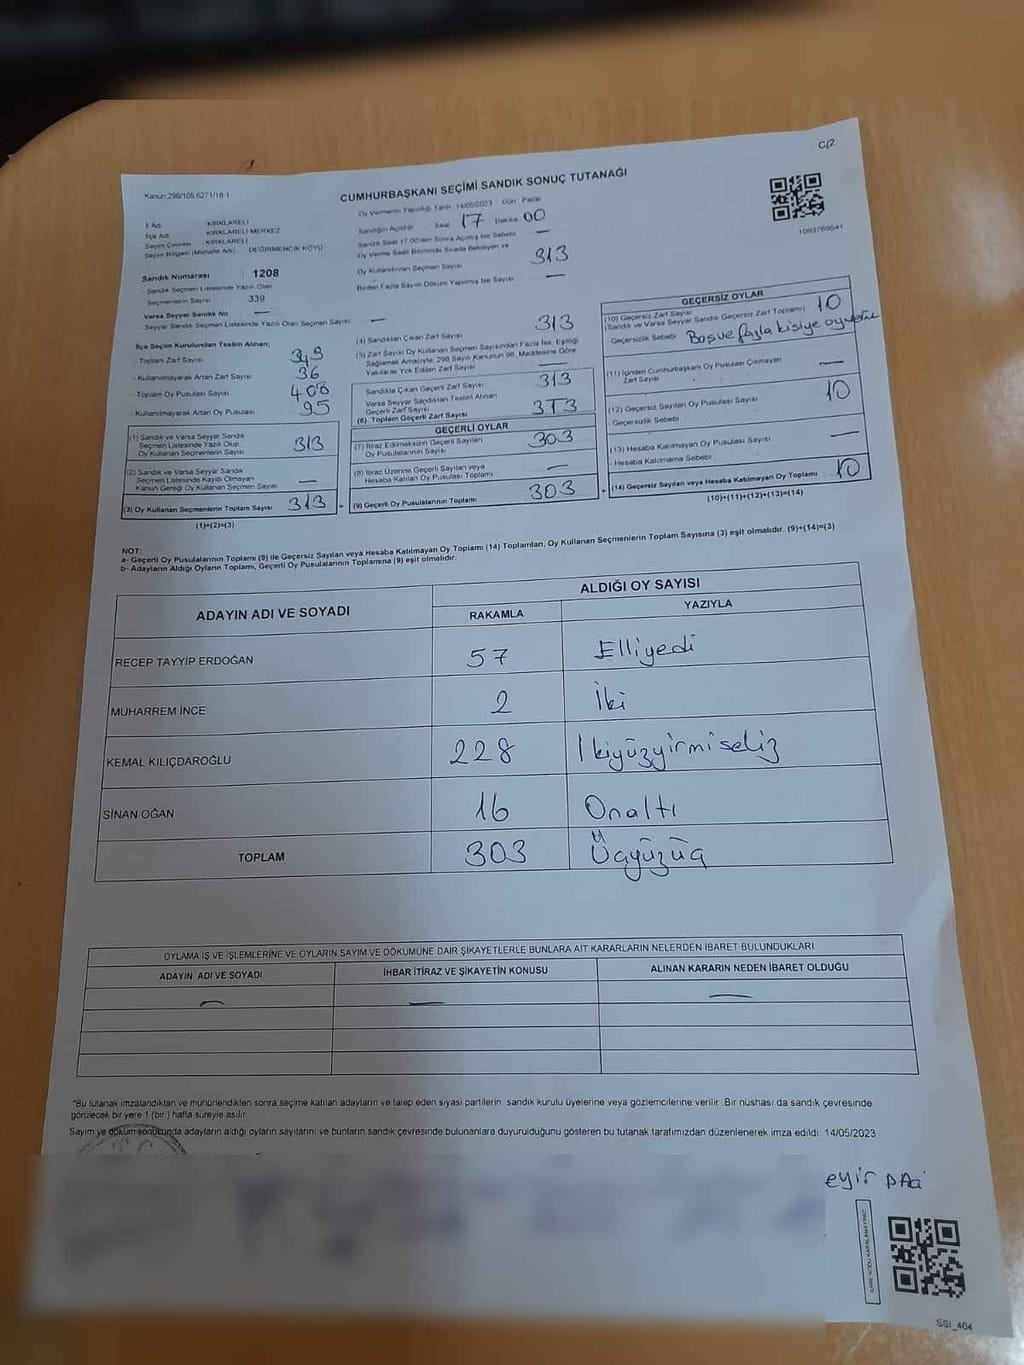 C/2
Kanun:298/105,6271/18-1
CUMHURBAŞKANI SEÇİMİ SANDIK SONUÇ TUTANAĞI
Oy Vermenin Yapıldığı Tarih: 14/05/2023 Gün: Pazar
İl Adı KIRKLARELİ
İlçe Adı KIRKLARELİ MERKEZ
Seçim Çevresi KIRKLARELİ
Seçim Bölgesi (Mahalle Adı) DEĞİRMENCİK KÖYÜ
Sandık Numarası : 1208
- Sandık Seçmen Listesinde Yazılı Olan
Seçmenlerin Sayısı 339
Varsa Seyyar Sandık No : —
- Seyyar Sandık Seçmen Listesinde Yazılı Olan Seçmen Sayısı : —
Sandığın Açıldığı Saat 17 Dakika 00
Sandık Saat 17:00'den Sonra Açılmış İse Sebebi —
Oy Verme Saati Bitiminde Sırada Bekleyen ve
Oy Kullandırılan Seçmen Sayısı 313
Birden Fazla Sayım Döküm Yapılmış İse Sayısı —
1093769541
İlçe Seçim Kurulundan Teslim Alınan;
- Toplam Zarf Sayısı 349
- Kullanılmayarak Artan Zarf Sayısı 36
- Toplam Oy Pusulası Sayısı 408
- Kullanılmayarak Artan Oy Pusulası 95
(1) Sandık ve Varsa Seyyar Sandık
Seçmen Listesinde Yazılı Olup
Oy Kullanan Seçmenlerin Sayısı 313
(2) Sandık ve Varsa Seyyar Sandık
Seçmen Listesinde Kayıtlı Olmayan
Kanun Gereği Oy Kullanan Seçmen Sayısı —
(3) Oy Kullanan Seçmenlerin Toplam Sayısı 313
(1)+(2)=(3)
(4) Sandıktan Çıkan Zarf Sayısı 313
(5) Zarf Sayısı Oy Kullanan Seçmen Sayısından Fazla İse, Eşitliği
Sağlamak Amacıyla; 298 Sayılı Kanunun 98. Maddesine Göre
Yakılarak Yok Edilen Zarf Sayısı —
Sandıkta Çıkan Geçerli Zarf Sayısı 313
Varsa Seyyar Sandıktan Teslim Alınan
Geçerli Zarf Sayısı
(6) Toplam Geçerli Zarf Sayısı 313
GEÇERLİ OYLAR
(7) İtiraz Edilmeksizin Geçerli Sayılan
Oy Pusulalarının Sayısı 303
(8) İtiraz Üzerine Geçerli Sayılan veya
Hesaba Katılan Oy Pusulası Toplamı —
(9) Geçerli Oy Pusulalarının Toplamı 303
GEÇERSİZ OYLAR
(10) Geçersiz Zarf Sayısı
(Sandık ve Varsa Seyyar Sandık Geçersiz Zarf Toplamı) 10
- Geçersizlik Sebebi Boş ve fazla kişiye oy
(11) İçinden Cumhurbaşkanı Oy Pusulası Çıkmayan
Zarf Sayısı —
(12) Geçersiz Sayılan Oy Pusulası Sayısı 10
- Geçersizlik Sebebi
(13) Hesaba Katılmayan Oy Pusulası Sayısı —
- Hesaba Katılmama Sebebi
(14) Geçersiz Sayılan veya Hesaba Katılmayan Oy Toplamı 10
(10)+(11)+(12)+(13)=(14)
NOT:
a- Geçerli Oy Pusulalarının Toplamı (9) ile Geçersiz Sayılan veya Hesaba Katılmayan Oy Toplamı (14) Toplamları, Oy Kullanan Seçmenlerin Toplam Sayısına (3) eşit olmalıdır. (9)+(14)=(3)
b- Adayların Aldığı Oyların Toplamı, Geçerli Oy Pusulalarının Toplamına (9) eşit olmalıdır.
ADAYIN ADI VE SOYADI ALDIĞI OY SAYISI
RAKAMLA YAZIYLA
RECEP TAYYİP ERDOĞAN 57 Elliyedi
MUHARREM İNCE 2 İki
KEMAL KILIÇDAROĞLU 228 İkiyüzyirmisekiz
SİNAN OĞAN 16 Onaltı
TOPLAM 303 Üçyüzüç
OYLAMA İŞ VE İŞLEMLERİNE VE OYLARIN SAYIM VE DÖKÜMÜNE DAİR ŞİKAYETLERLE BUNLARA AİT KARARLARIN NELERDEN İBARET BULUNDUKLARI
ADAYIN ADI VE SOYADI İHBAR İTİRAZ VE ŞİKAYETİN KONUSU ALINAN KARARIN NEDEN İBARET OLDUĞU
— — —
*Bu tutanak imzalandıktan ve mühürlendikten sonra seçime katılan adayların ve talep eden siyasi partilerin sandık kurulu üyelerine veya gözlemcilerine verilir. Bir nüshası da sandık çevresinde
görülecek bir yere 1 (bir) hafta süreyle asılır.
Sayım ve döküm sonucunda adayların aldığı oyların sayılarını ve bunların sandık çevresinde bulunanlara duyurulduğunu gösteren bu tutanak tarafımızdan düzenlenerek imza edildi. 14/05/2023
KARE KODU KARALAMAYINIZ!
SSI_404